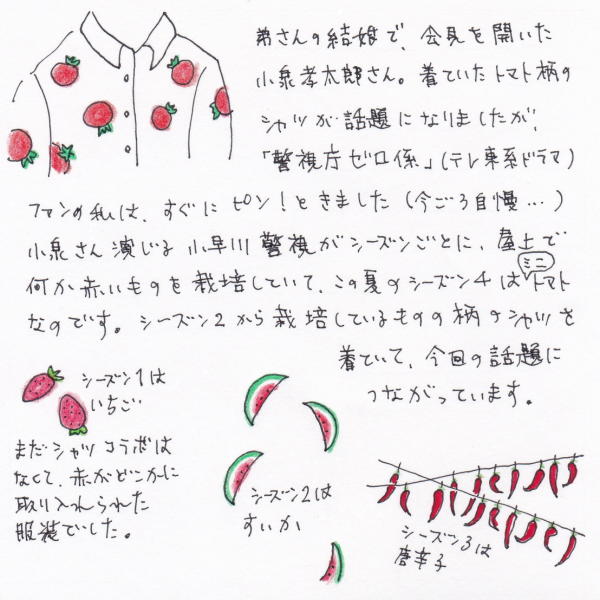 弟さんの結婚で、会見を開いた
小泉孝太郎さん。着ていたトマト柄の
シャツが話題になりましたが、
「警視庁ゼロ係」(テレ東系ドラマ)
ファンの私は、すぐにピン!ときました(今ごろ自慢…)
小泉さん演じる小早川警視がシーズンごとに、屋上で
何か赤いものを栽培していて、この夏のシーズン4はミニトマト
なのです。シーズン2から栽培しているものの柄のシャツを
着ていて、今回の話題に
つながっています。
シーズン1は
いちご
まだシャツコラボは
なくて、赤がどこかに
取り入れられた
服装でした。
シーズン2は
すいか
シーズン3は
唐辛子